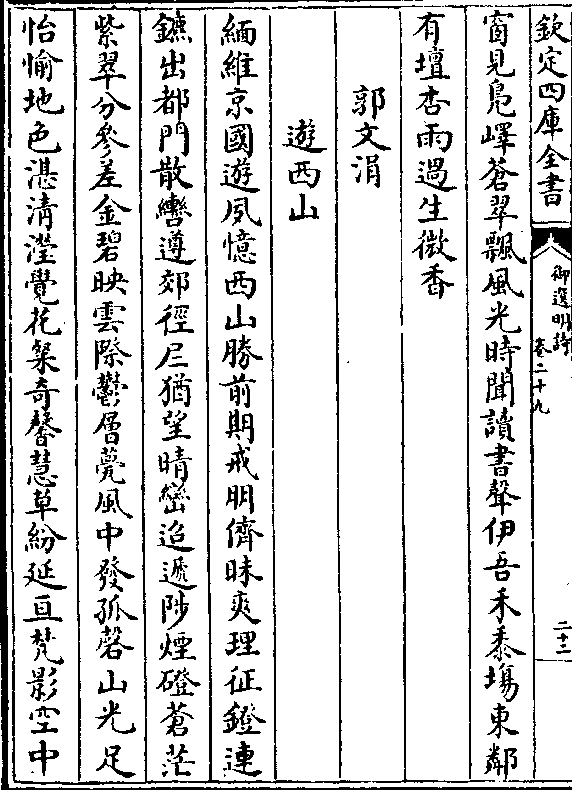 欽定四庫全書
御選明詩
卷二十九
二十三
窗見鳧嶧蒼翠飄風光時聞讀書聲伊吾禾黍場東鄰
有壇杏雨過生微香
郭文涓
遊西山
緬維京國遊夙憶西山勝前期戒朋儕昧爽理征鐙連
鑣出都門散轡遵郊徑咫猶望晴巒迢遞陟煙磴蒼茫
紫翠分參差金碧映雲際鬱層甍風中發孤磬山光足
怡愉地色湛清瀅覺花粲奇馨慧草紛延亘梵影空中